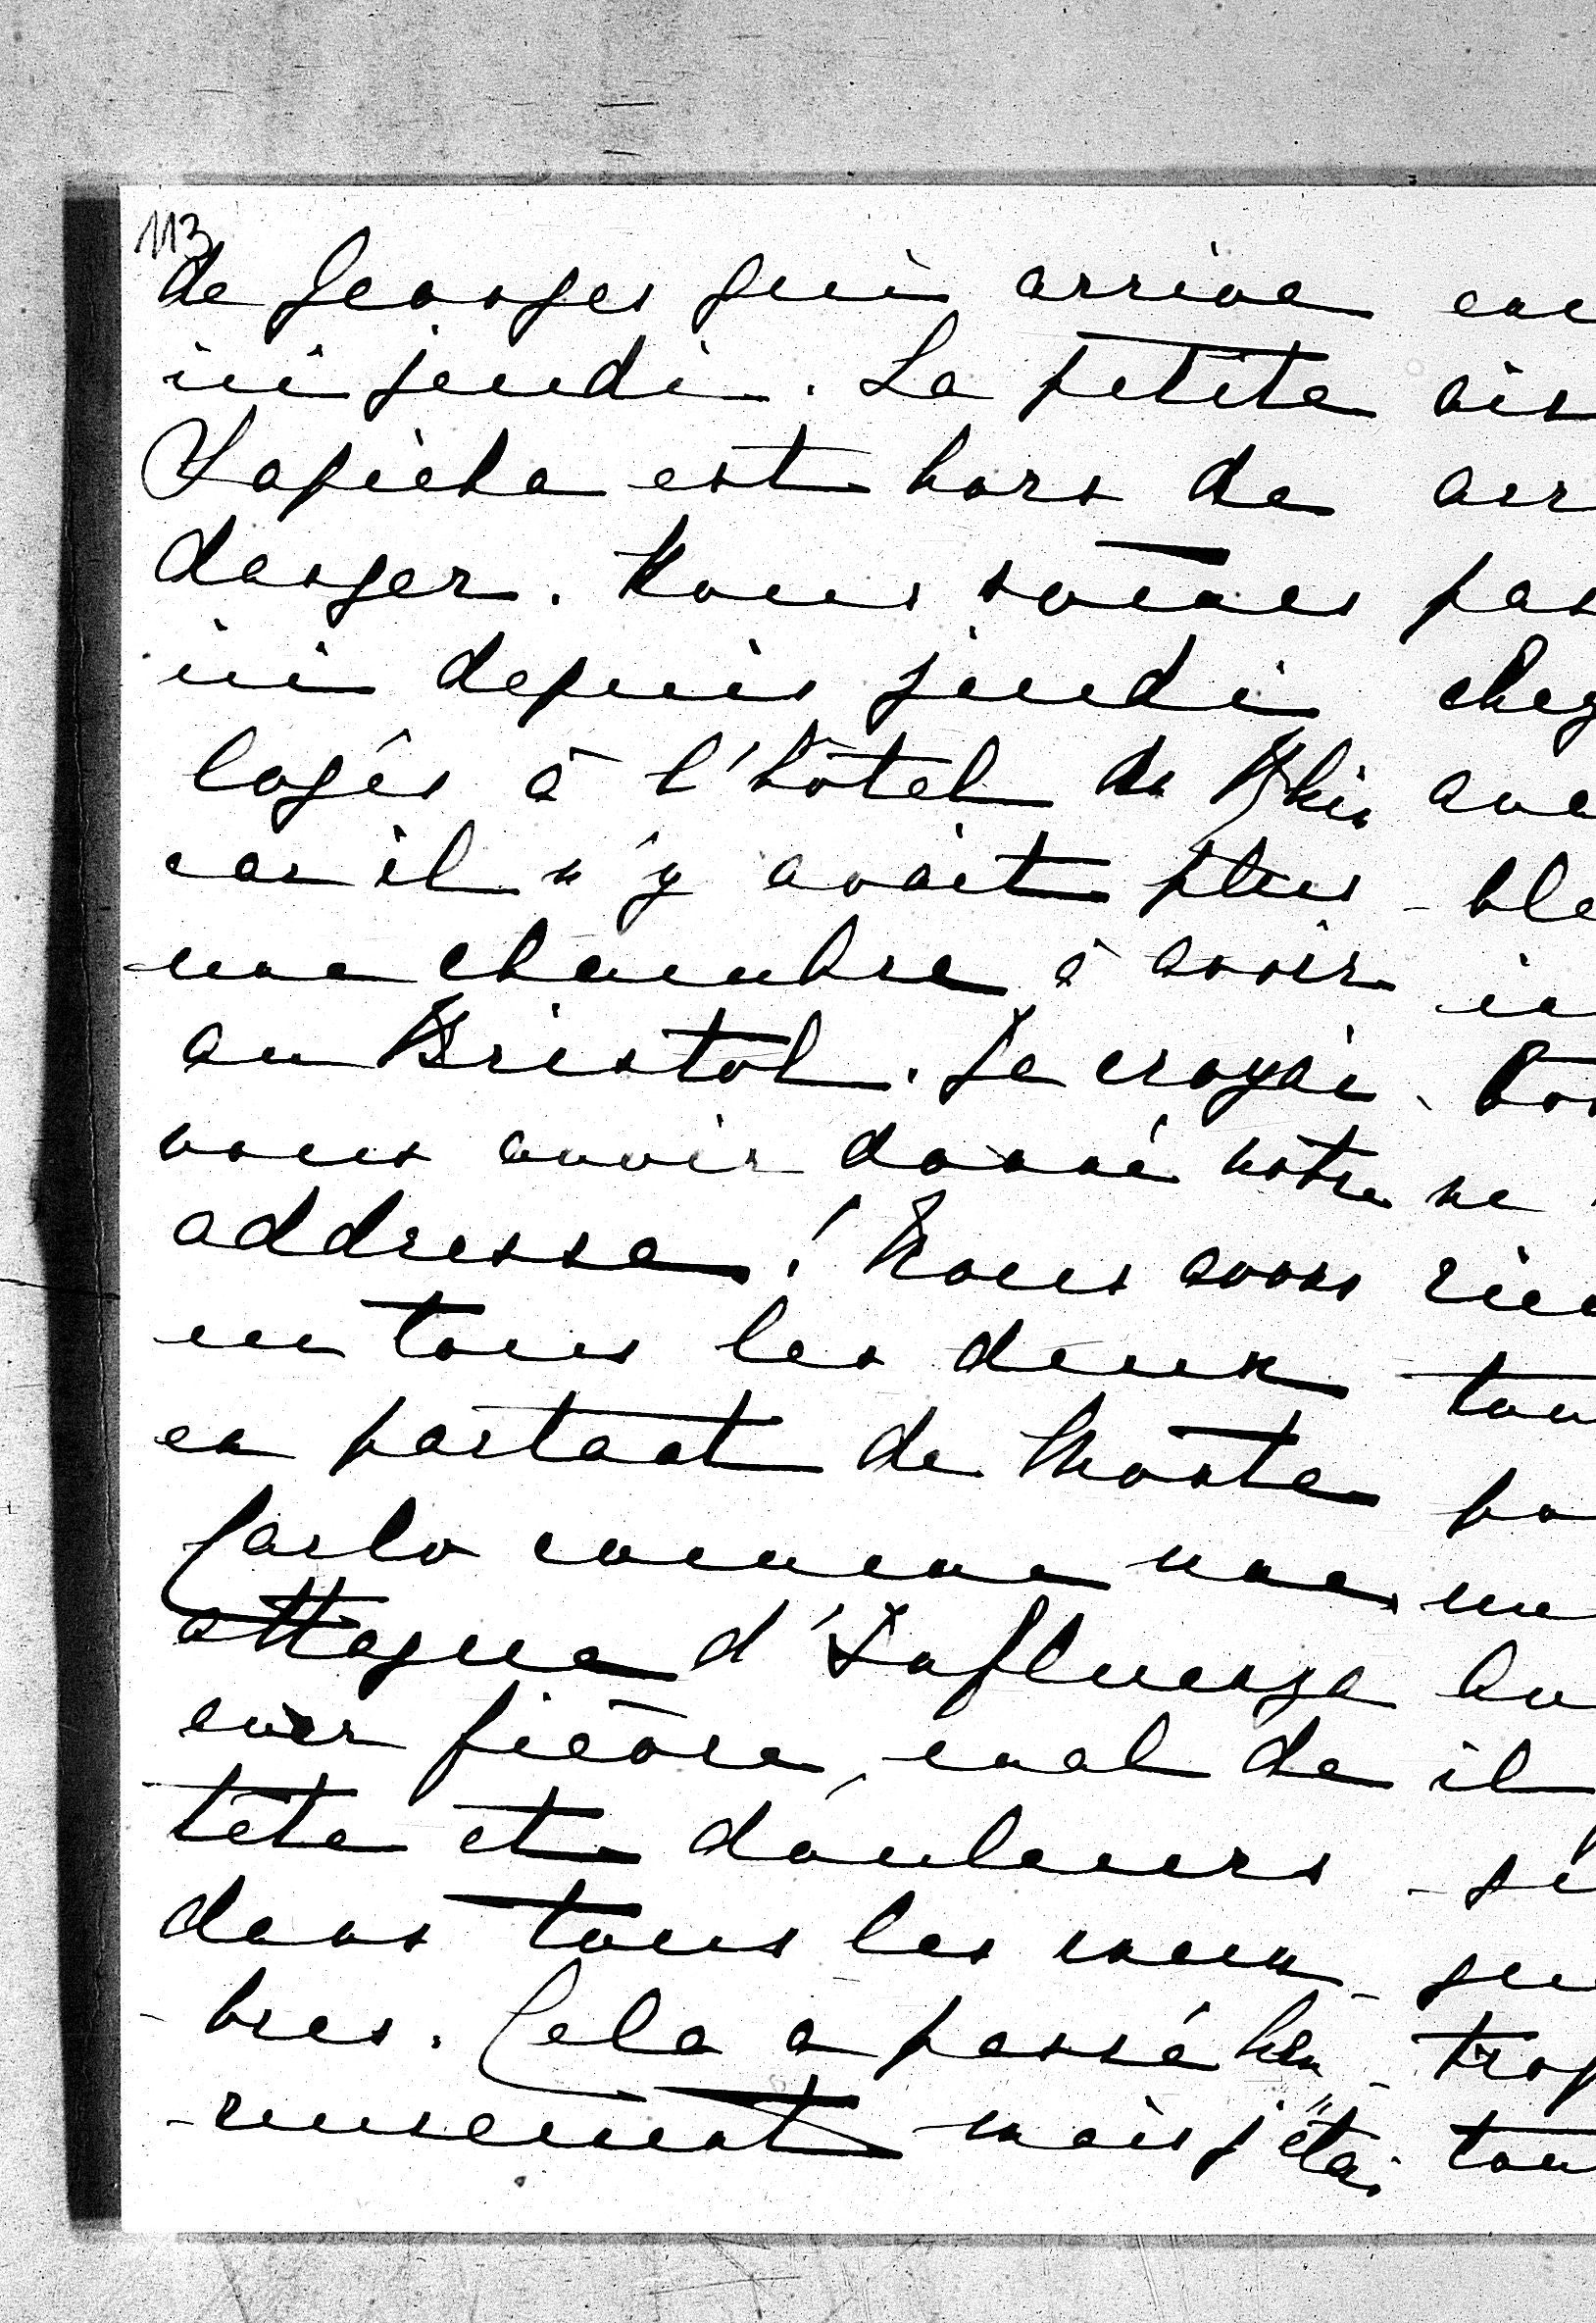 113
de Georges qui arrive
ici jeudi. La petite
Sophie est hors de
danger. Nous somes pas
ici depuis jeudi chez
logés à l'hôtel du Rhin
car il n'y avait plus - ble
une chambre à avoir
au Bristol. Je croyai
vous avoir donné notre ne
addresse! Nous avons
eu tous les deux tou
en partant de Monte
Carlo comme une
attaque d'Influenza
avec fièvre, mal de il
tête et douleurs
dans tous les mem
- bres. Cela a passé heu - trop
- reusement mais j'étai tou